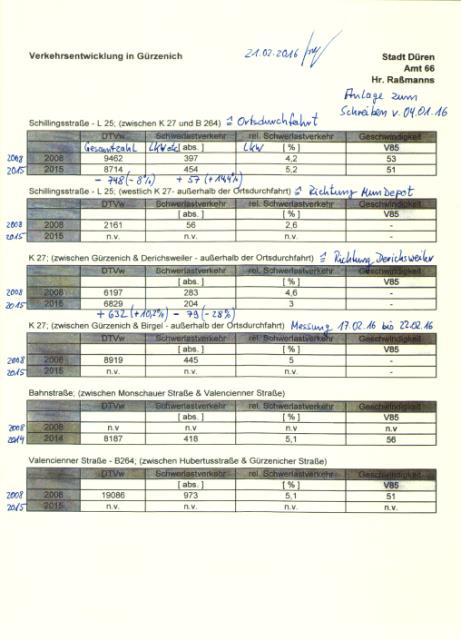 21.02.2016
Verkehrsentwicklung in Gürzenich
Stadt Düren
Amt 66
Hr. Raßmanns
Anlage zum
Schreiben v. 04.01.16
Schillingsstraße - L 25; (zwischen K 27 und B 264) Ortsdurchfahrt
DTVw Schwerlastverkehr rel. Schwerlastverkehr Geschwindigkeit
Gesamtzahl LKW [ abs. ] LKW [ % ] V85
2008 2008 9462 397 4,2 53
2015 2015 8714 454 5,2 51
- 748 (-8%) + 57 (+14,4%)
Schillingsstraße - L 25; (westlich K 27- außerhalb der Ortsdurchfahrt) Richtung MunDepot
DTVw Schwerlastverkehr rel. Schwerlastverkehr Geschwindigkeit
[ abs. ] [ % ] V85
2008 2008 2161 56 2,6 -
2015 2015 n.v. n.v. n.v. -
K 27; (zwischen Gürzenich & Derichsweiler - außerhalb der Ortsdurchfahrt) Richtung Derichsweiler
DTVw Schwerlastverkehr rel. Schwerlastverkehr Geschwindigkeit
[ abs. ] [ % ] V85
2008 2008 6197 283 4,6 -
2015 2015 6829 204 3 -
+ 632 (+10,2%) - 79 (-28%)
K 27; (zwischen Gürzenich & Birgel - außerhalb der Ortsdurchfahrt) Messung 17.02.16 bis 22.02.16
DTVw Schwerlastverkehr rel. Schwerlastverkehr Geschwindigkeit
[ abs. ] [ % ] V85
2008 2008 8919 445 5 -
2015 2015 n.v. n.v. n.v. -
Bahnstraße; (zwischen Monschauer Straße & Valencienner Straße)
DTVw Schwerlastverkehr rel. Schwerlastverkehr Geschwindigkeit
[ abs. ] [ % ] V85
2008 2008 n.v n.v n.v n.v.
2014 2014 8187 418 5,1 56
Valencienner Straße - B264; (zwischen Hubertusstraße & Gürzenicher Straße)
DTVw Schwerlastverkehr rel. Schwerlastverkehr Geschwindigkeit
[ abs. ] [ % ] V85
2008 2008 19086 973 5,1 51
2015 2015 n.v. n.v. n.v. n.v.